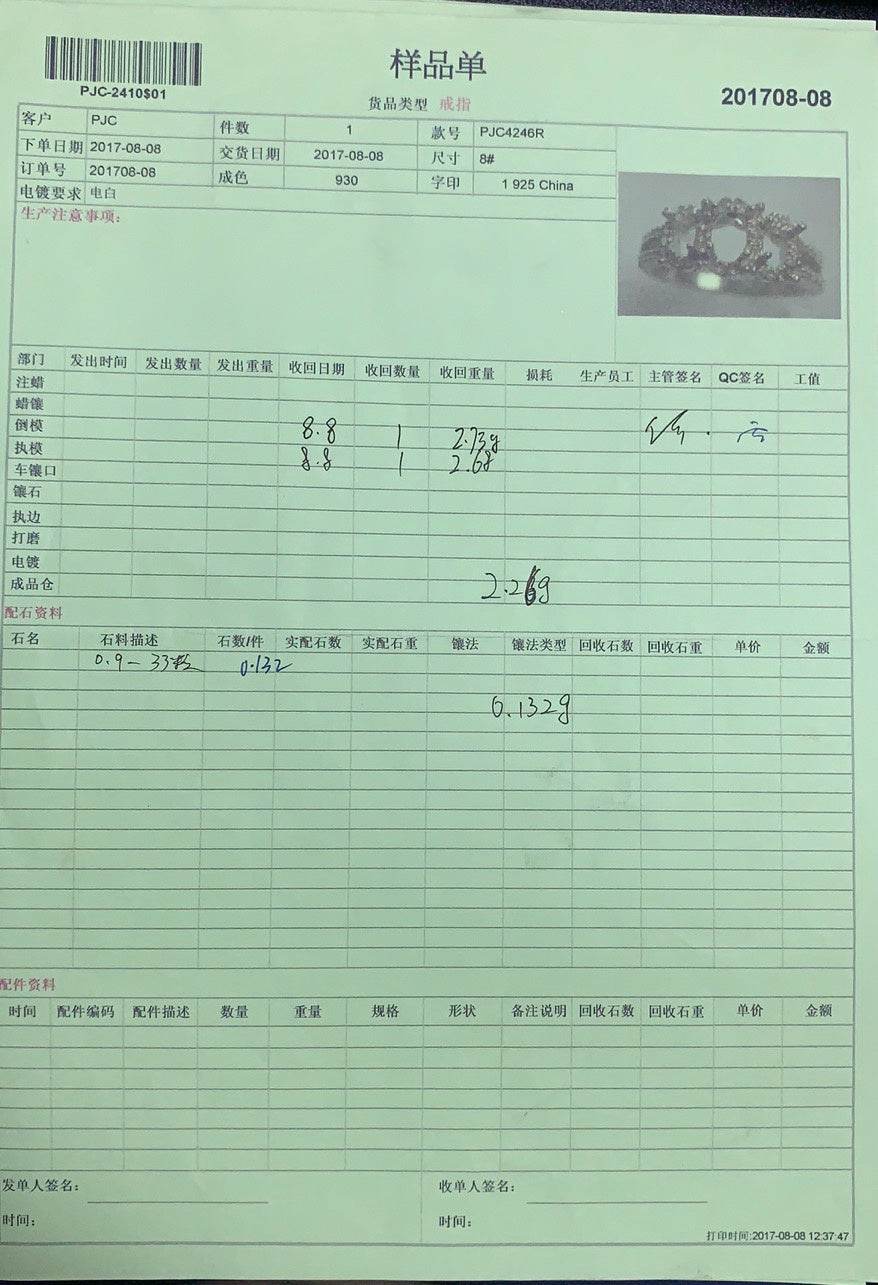 样品单
PJC-2410$01
货品类型 戒指
201708-08
客户 PJC 件数 1 款号 PJC4246R
下单日期 2017-08-08 交货日期 2017-08-08 尺寸 8#
订单号 201708-08 成色 930 字印 1 925 China
电镀要求 电白
生产注意事项:
部门 发出时间 发出数量 发出重量 收回日期 收回数量 收回重量 损耗 生产员工 主管签名 QC签名 工值
注蜡
蜡镶
倒模 8.8 1 2.73g
执模 8.8 1 2.68
车镶口
镶石
执边
打磨
电镀
成品仓 2.26g
配石资料
石名 石料描述 石数/件 实配石数 实配石重 镶法 镶法类型 回收石数 回收石重 单价 金额
0.9-33粒 0.132
0.132g
配件资料
时间 配件编码 配件描述 数量 重量 规格 形状 备注说明 回收石数 回收石重 单价 金额
发单人签名: 收单人签名:
时间: 时间:
打印时间:2017-08-08 12:37:47